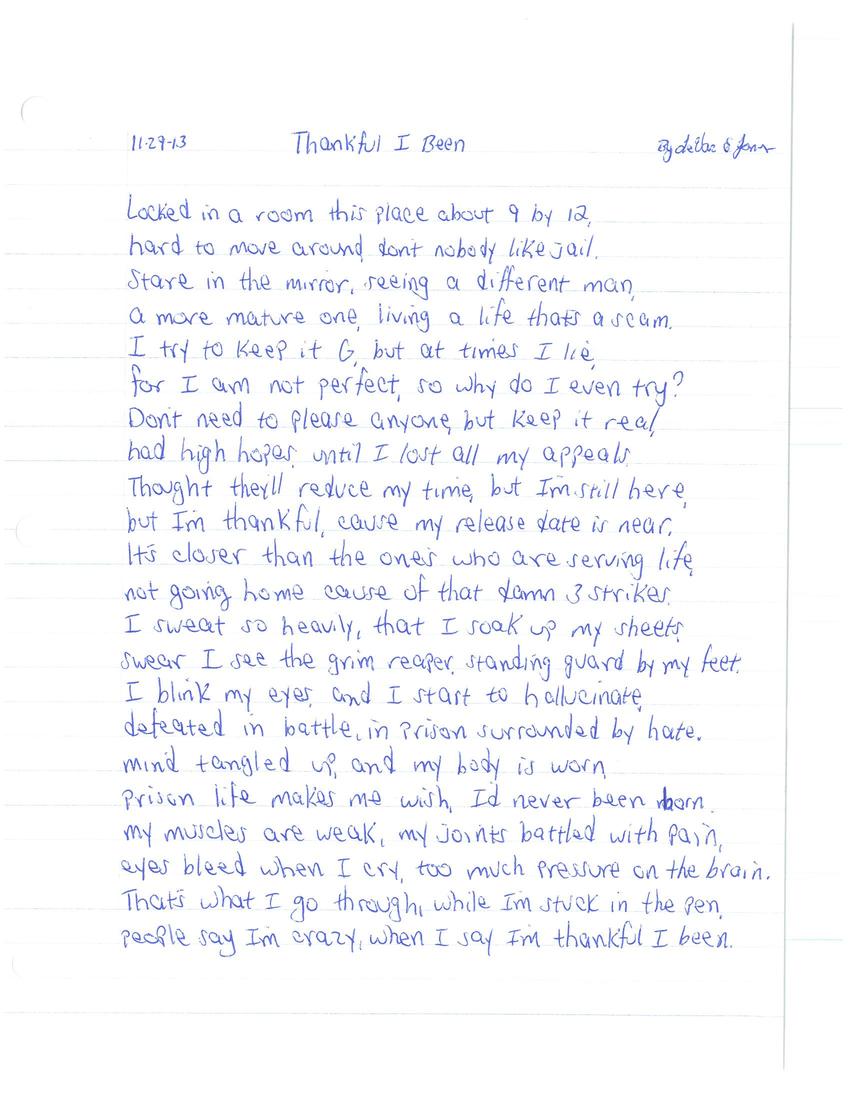 11-29-13 Thankful I Been By
Locked in a room this place about 9 by 12,
hard to move around, don't nobody like jail.
Stare in the mirror, seeing a different man,
a more mature one, living a life that's a scam.
I try to keep it G, but at times I lie,
for I am not perfect, so why do I even try?
Don't need to please anyone, but keep it real,
had high hopes, until I lost all my appeals.
Thought they'll reduce my time, but I'm still here,
but I'm thankful, cause my release date is near.
It's closer than the one's who are serving life,
not going home cause of that damn 3 strikes.
I sweat so heavily, that I soak up my sheets,
swear I see the grim reaper, standing guard by my feet.
I blink my eyes, and I start to hallucinate,
defeated in battle, in prison surrounded by hate.
mind tangled up, and my body is worn,
prison life makes me wish, I'd never been born.
my muscles are weak, my joints battled with pain,
eyes bleed when I cry, too much pressure on the brain.
That's what I go through, while I'm stuck in the pen,
people say I'm crazy, when I say I'm thankful I been.